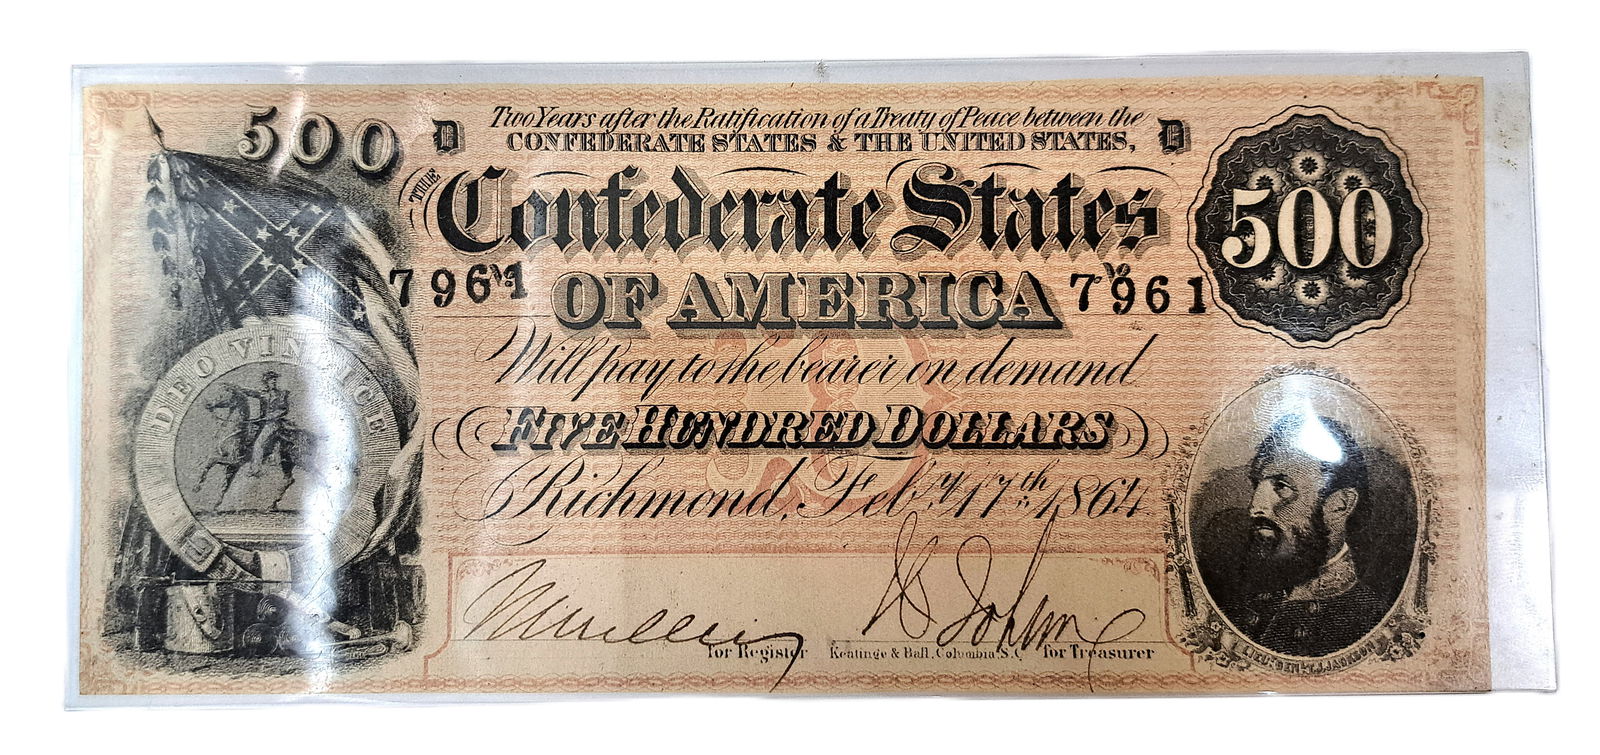 500
D
Two Years after the Ratification of a Treaty of Peace between the
D
CONFEDERATE STATES & THE UNITED STATES,
THE Confederate States
500
7961
OF AMERICA
7961
Will pay to the bearer on demand
DEO VINDICE
FIVE HUNDRED DOLLARS
Richmond, Feby. 17th 1864
for Register
Keatinge & Ball, Columbia, S.C.
for Treasurer
LIEUT. GEN. T.J. JACKSON